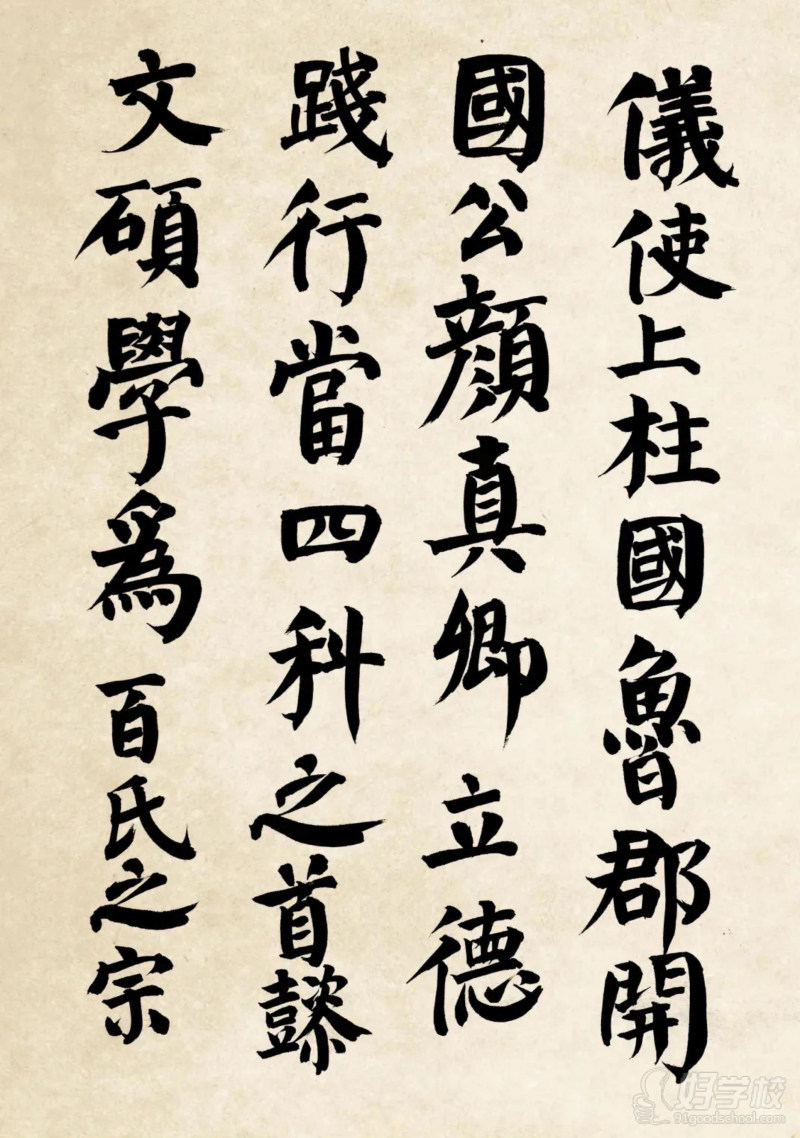 儀使上柱國魯郡開
國公顔真卿立德
踐行當四科之首懿
文碩學爲百氏之宗
好学校
91goodschool.com